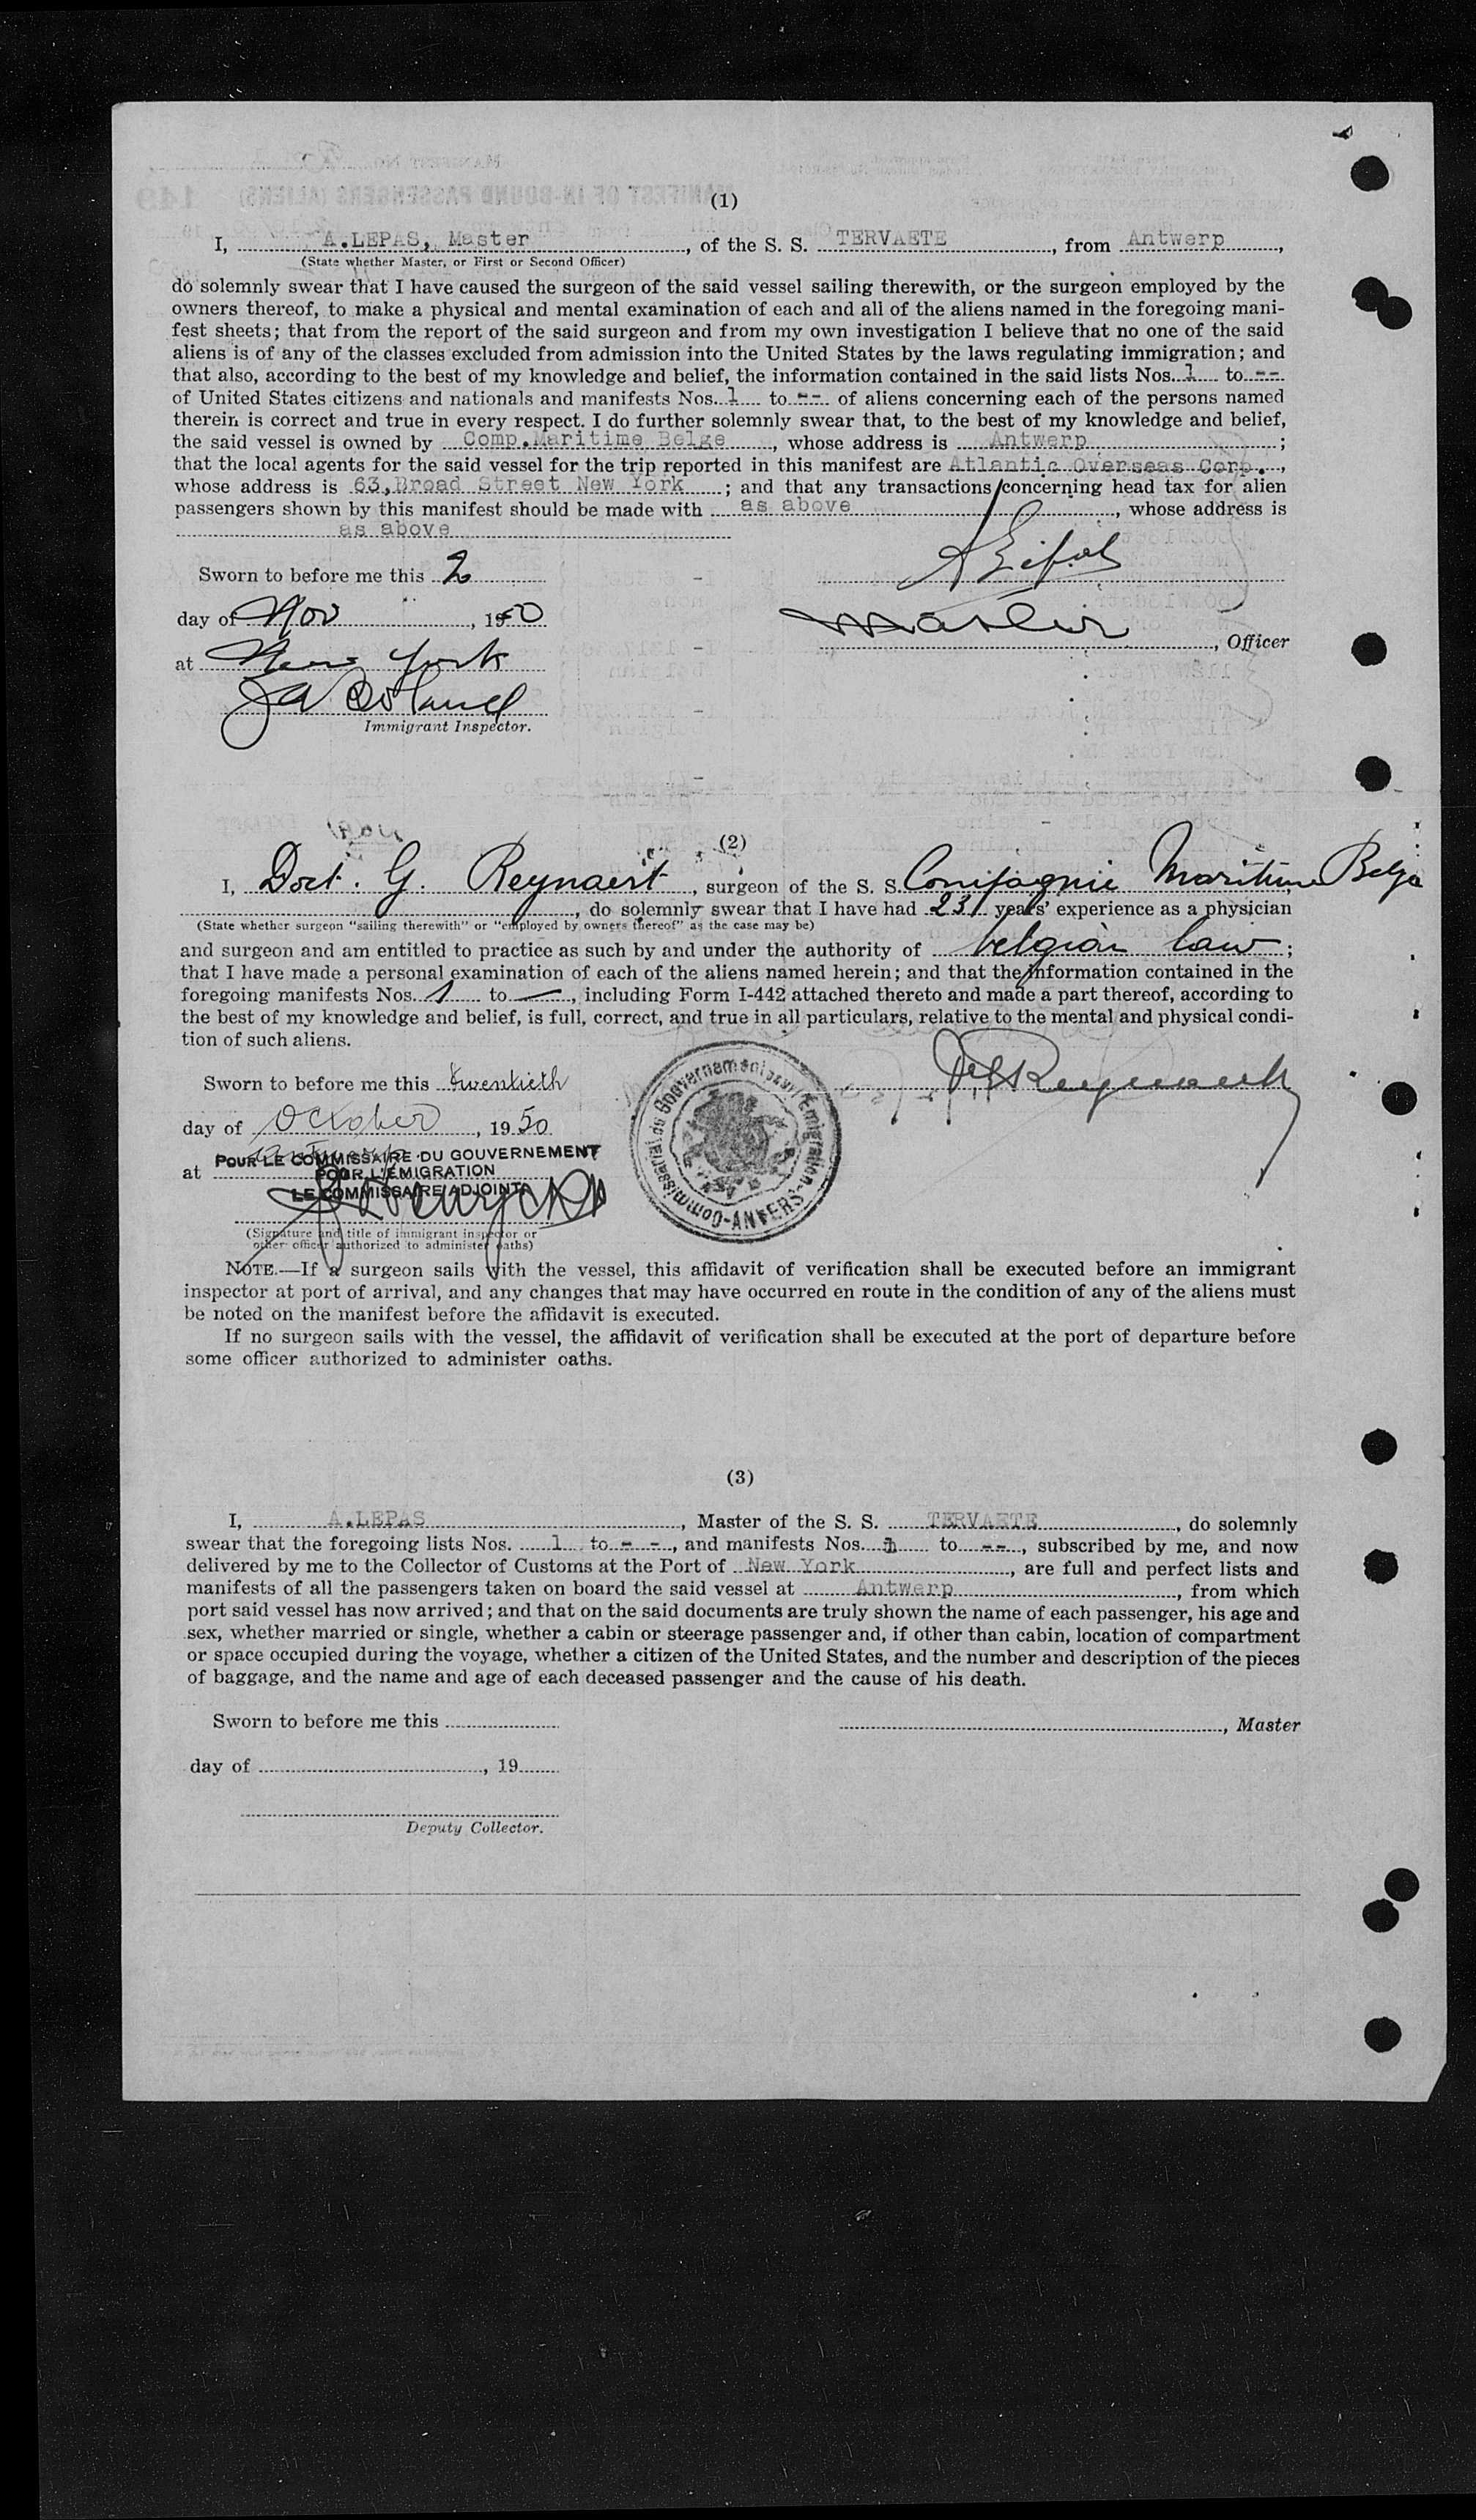 (1)
I, A.LEPAS, Master, of the S. S. TERVAETE, from Antwerp,
(State whether Master, or First or Second Officer)
do solemnly swear that I have caused the surgeon of the said vessel sailing therewith, or the surgeon employed by the
owners thereof, to make a physical and mental examination of each and all of the aliens named in the foregoing mani-
fest sheets; that from the report of the said surgeon and from my own investigation I believe that no one of the said
aliens is of any of the classes excluded from admission into the United States by the laws regulating immigration; and
that also, according to the best of my knowledge and belief, the information contained in the said lists Nos. 1 to --
of United States citizens and nationals and manifests Nos. 1 to -- of aliens concerning each of the persons named
therein is correct and true in every respect. I do further solemnly swear that, to the best of my knowledge and belief,
the said vessel is owned by Comp.Maritime Belge, whose address is Antwerp;
that the local agents for the said vessel for the trip reported in this manifest are Atlantic Overseas Corp.,
whose address is 63,Broad Street New York; and that any transactions concerning head tax for alien
passengers shown by this manifest should be made with as above, whose address is
as above
Sworn to before me this 2
day of Nov, 1950
Master, Officer
at New York
Immigrant Inspector.
(2)
I, Doct. G. Reynaert, surgeon of the S. S. Compagnie Maritime Belge
, do solemnly swear that I have had 23 years' experience as a physician
(State whether surgeon "sailing therewith" or "employed by owners thereof" as the case may be)
and surgeon and am entitled to practice as such by and under the authority of belgian law;
that I have made a personal examination of each of the aliens named herein; and that the information contained in the
foregoing manifests Nos. 1 to —, including Form I-442 attached thereto and made a part thereof, according to
the best of my knowledge and belief, is full, correct, and true in all particulars, relative to the mental and physical condi-
tion of such aliens.
Sworn to before me this twentieth
day of October, 1950
at
POUR LE COMMISSAIRE DU GOUVERNEMENT
POUR L'EMIGRATION
LE COMMISSAIRE ADJOINT
Commissariat du Gouvernement pour l'Emigration - ANVERS -
(Signature and title of immigrant inspector or
other officer authorized to administer oaths)
NOTE.—If a surgeon sails with the vessel, this affidavit of verification shall be executed before an immigrant
inspector at port of arrival, and any changes that may have occurred en route in the condition of any of the aliens must
be noted on the manifest before the affidavit is executed.
If no surgeon sails with the vessel, the affidavit of verification shall be executed at the port of departure before
some officer authorized to administer oaths.
(3)
I, A.LEPAS, Master of the S. S. TERVAETE, do solemnly
swear that the foregoing lists Nos. 1 to - -, and manifests Nos. 1 to --, subscribed by me, and now
delivered by me to the Collector of Customs at the Port of New York, are full and perfect lists and
manifests of all the passengers taken on board the said vessel at Antwerp, from which
port said vessel has now arrived; and that on the said documents are truly shown the name of each passenger, his age and
sex, whether married or single, whether a cabin or steerage passenger and, if other than cabin, location of compartment
or space occupied during the voyage, whether a citizen of the United States, and the number and description of the pieces
of baggage, and the name and age of each deceased passenger and the cause of his death.
Sworn to before me this
, Master
day of , 19
Deputy Collector.